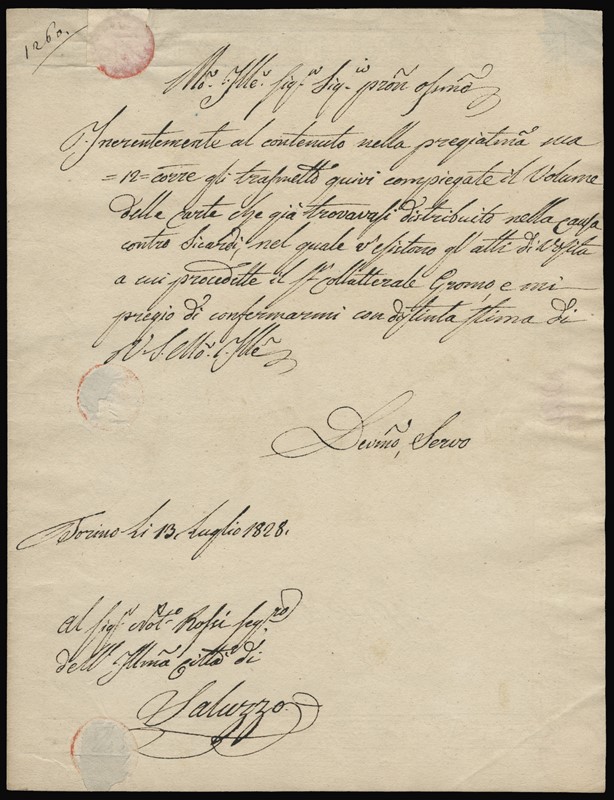 1260.
Mo. Ille. Sigr. Sigr. pron osmo
Inerentemente al contenuto nella pregiatma sua
=12= corre gli trasmetto quivi compiegate il Volume
delle carte che già trovavasi distribuito nella causa
contro Sicardi, nel quale v'esistono gl'atti di visita
a cui procedette il Sr. Collatterale Gromo, e mi
pregio di confermarmi con distinta stima di
V. S. Mo. Ille
Devmo, Servo
Torino li 13 Luglio 1828.
Al Sigr. Notro Rossi Segro
dell'Illma Città di
Saluzzo.